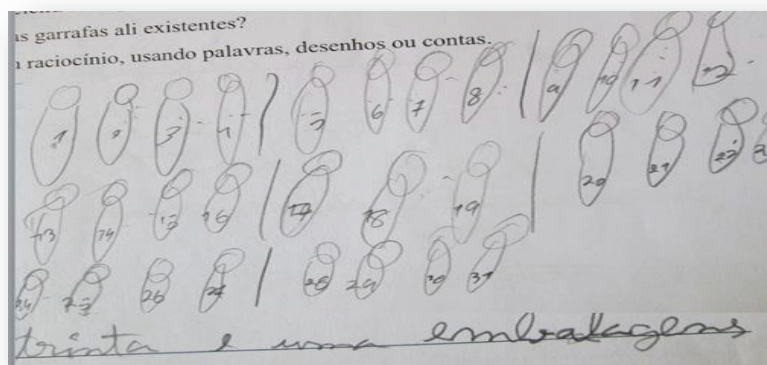 as garrafas ali existentes?
raciocínio, usando palavras, desenhos ou contas.
1 2 3 4 5 6 7 8 9 10 11 12
13 14 15 16 17 18 19 20 21 22
24 25 26 27 28 29 30 31
trinta e uma embalagens